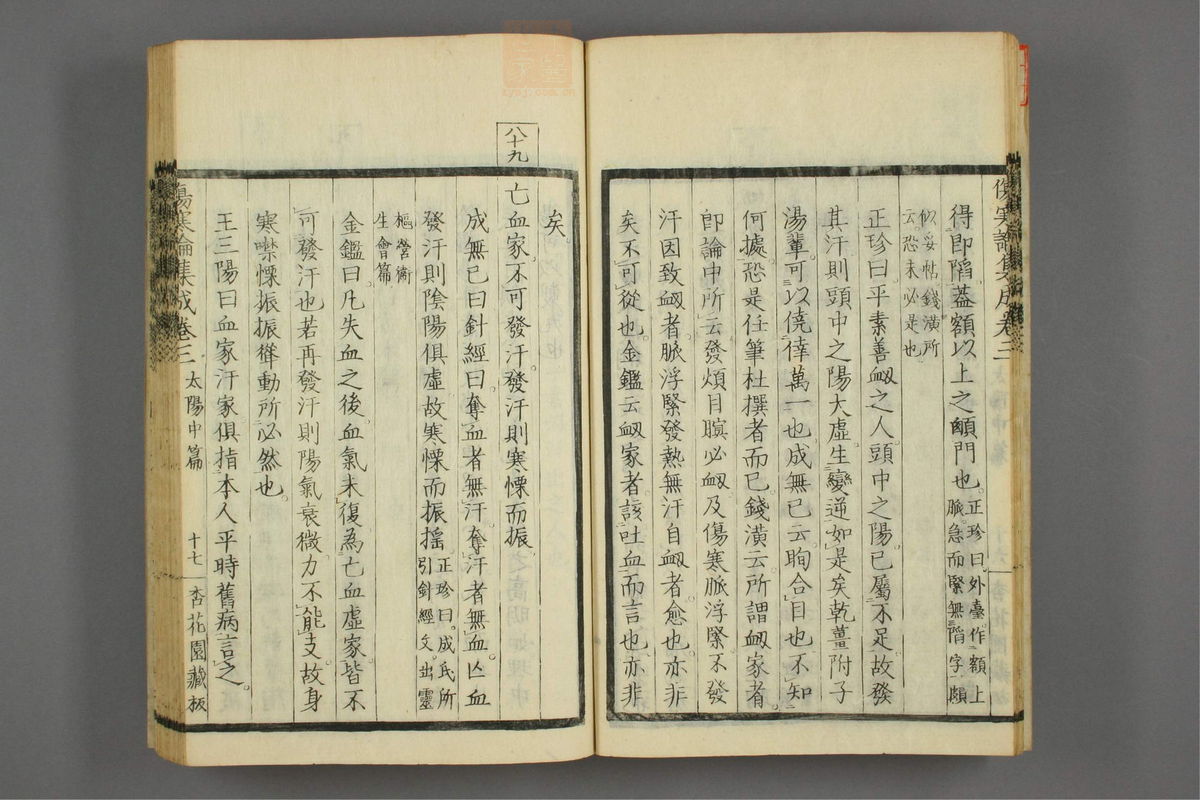 傷寒論集成卷三
得即陷蓋額以上之頣門也正珍曰外臺作額上
脈急而緊無陷字頗
似妥帖錢潢所
云恐未必是也
正珍曰平素善衄之人頭中之陽已屬不足故發
其汗則頭中之陽大虛生變逆如是矣乾薑附子
湯輩可以僥倖萬一也成無已云眴合目也不知
何據恐是任筆杜撰者而已錢潢云所謂衄家者
即論中所云發煩目瞑必衄及傷寒脈浮緊不發
汗因致衄者脈浮緊發熱無汗自衄者愈也亦非
矣不可從也金鑑云衄家者該吐血而言也亦非
矣
八十九
亡血家不可發汗發汗則寒慄而振
成無已曰針經曰奪血者無汗奪汗者無血亾血
發汗則陰陽俱虛故寒慄而振搖正珍曰成氏所
引針經文出靈
樞營衛
生會篇
金鑑曰凡失血之後血氣未復為亡血虛家皆不
可發汗也若再發汗則陽氣衰微力不能支故身
寒噤慄振振聳動所必然也
王三陽曰血家汗家俱指本人平時舊病言之
傷寒論集成卷三 太陽中篇 十七 杏花園藏板